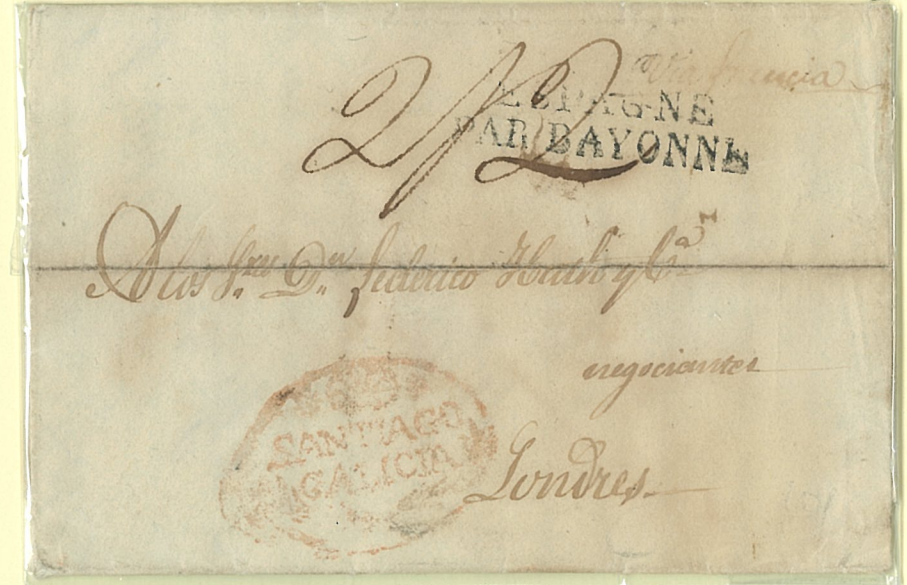 Via Francia
2/2
ESPAGNE
PAR BAYONNE
A los S.res D.n Federico Huth y C.a
negociantes
Londres
SANTIAGO
GALICIA